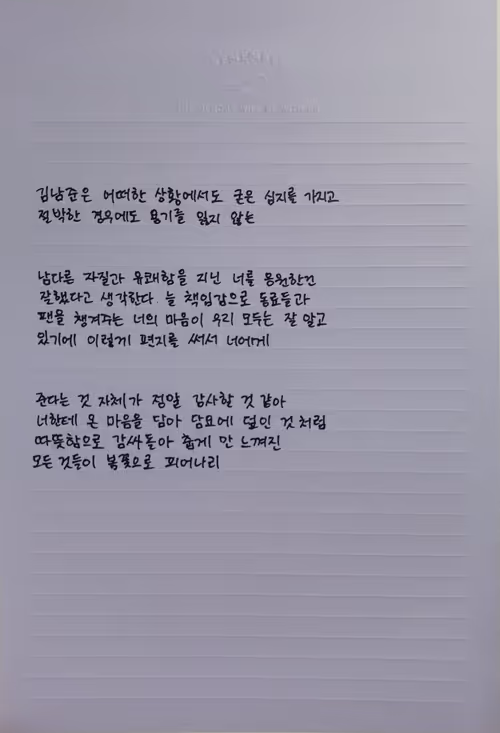 김남준은 어떠한 상황에서도 굳은 심지를 가지고
절박한 경우에도 용기를 잃지 않는
남다른 자질과 유쾌함을 지닌 너를 동원한건
잘했다고 생각한다. 늘 책임감으로 동료들과
팬을 챙겨주는 너의 마음이 우리 모두는 잘 알고
있기에 이렇게 편지를 써서 너에게
준다는 것 자체가 정말 감사할 것 같아
너한테 온 마음을 담아 담요에 덮인 것처럼
따뜻함으로 감싸돌아 춥게 만 느껴진
모든 것들이 불꽃으로 피어나리